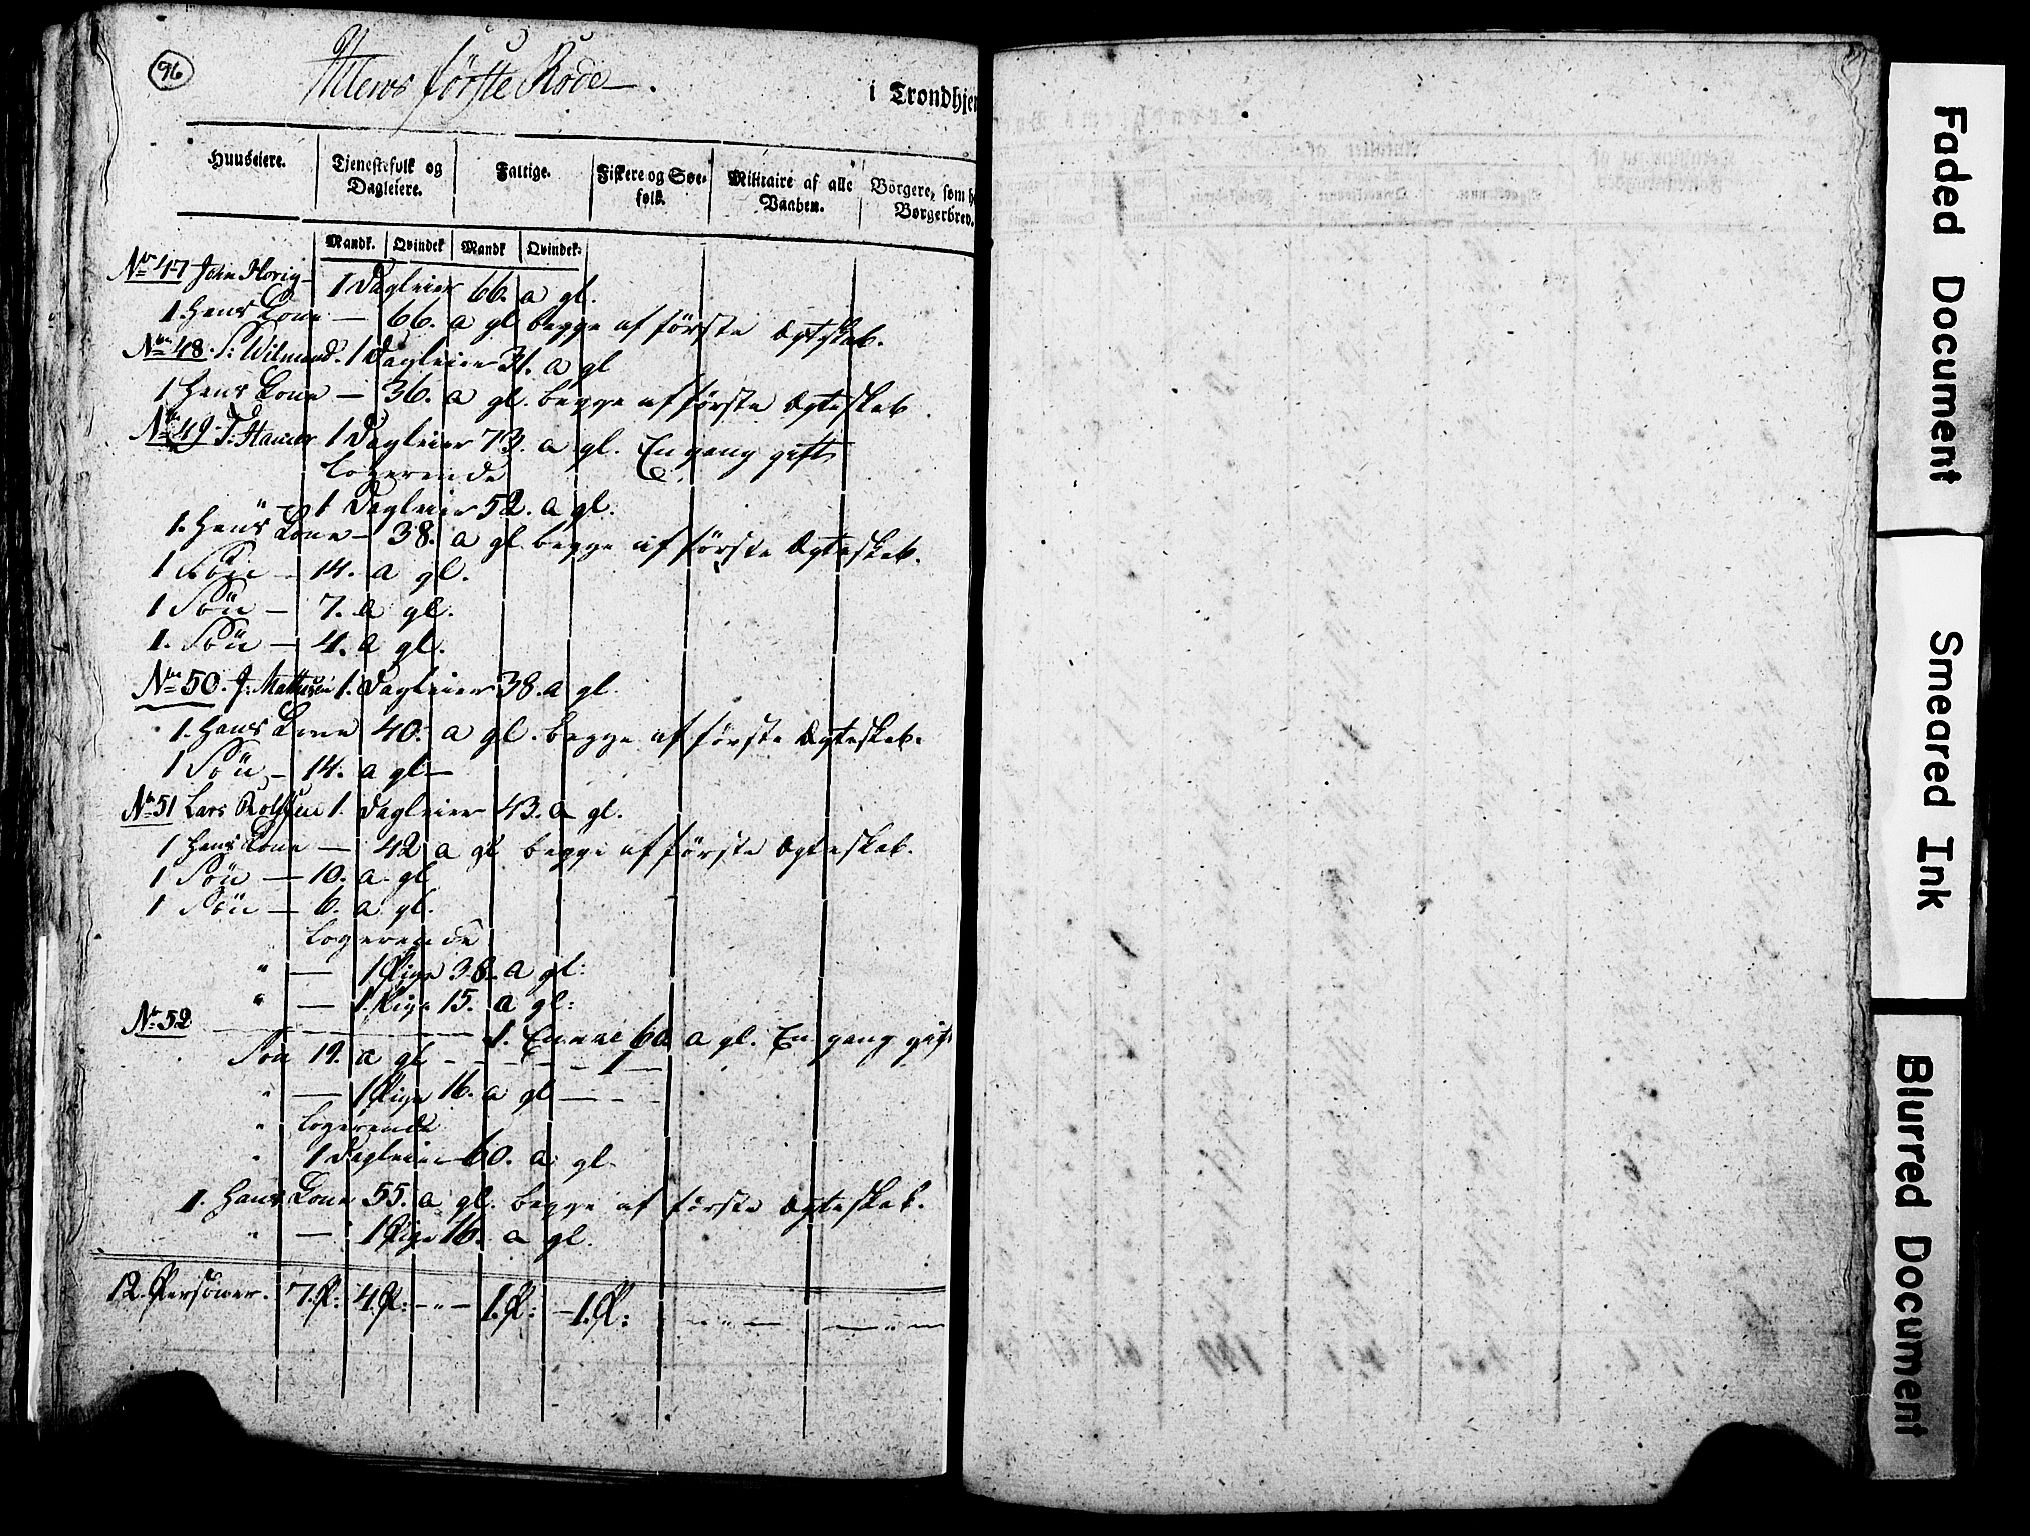 96
Ihlens første Rode.
i Trondhjem
Huuseiere.
Tjenestefolk og Dagleiere.
Fattige.
Fiskere og Søefolk.
Militaire af alle Vaaben.
Borgere, som h
Borgerbrev.
Mandk. Qvindek Mandk Qvindek:
No 47 John 1 Dagleier 66. a gl.
1 Hans Kone — 66. a gl begge af første Ægteskab.
No 48. P: Wilmand. 1 Dagleier 31. a gl
1 Hans Kone — 36. a gl. begge af første Ægteskab.
No 49 1 Dagleier 73. a gl. En gang gift
Logerende
" 1 Dagleier 52. a gl.
1. Hans Kone — 38. a gl begge af første Ægteskab.
1 Søn — 14. a gl.
1 Søn — 7. a gl.
1. Søn — 4. a gl.
No 50. J: Mathisen 1. Dagleier 38. a gl.
1. Hans Kone 40. a gl. begge af første Ægteskab.
1 Søn — 14. a gl —
No 51 Lars Rolfsen 1. Dagleier 43. a gl.
1 Hans Kone — 42 a gl begge af første Ægteskab.
1 Søn — 10. a gl
1 Søn — 6. a gl.
Logerende
" — 1 Pige 38. a gl:
" — 1. Pige 15. a gl:
No 52 — 1. Enke 60 a gl. En gang gift
Søn 19. a gl — 1 —
" — 1 Pige 16. a gl — — —
" Logerende
" 1 Dagleier 60. a gl.
1. Hans Kone 55. a gl. begge af første Ægteskab.
" — 1 Pige 16. a gl.
12. Personer. 7. P: 4 P: — " — 1. P: — 1. P: — " — — " —
Faded Document
Smeared Ink
Blurred Document